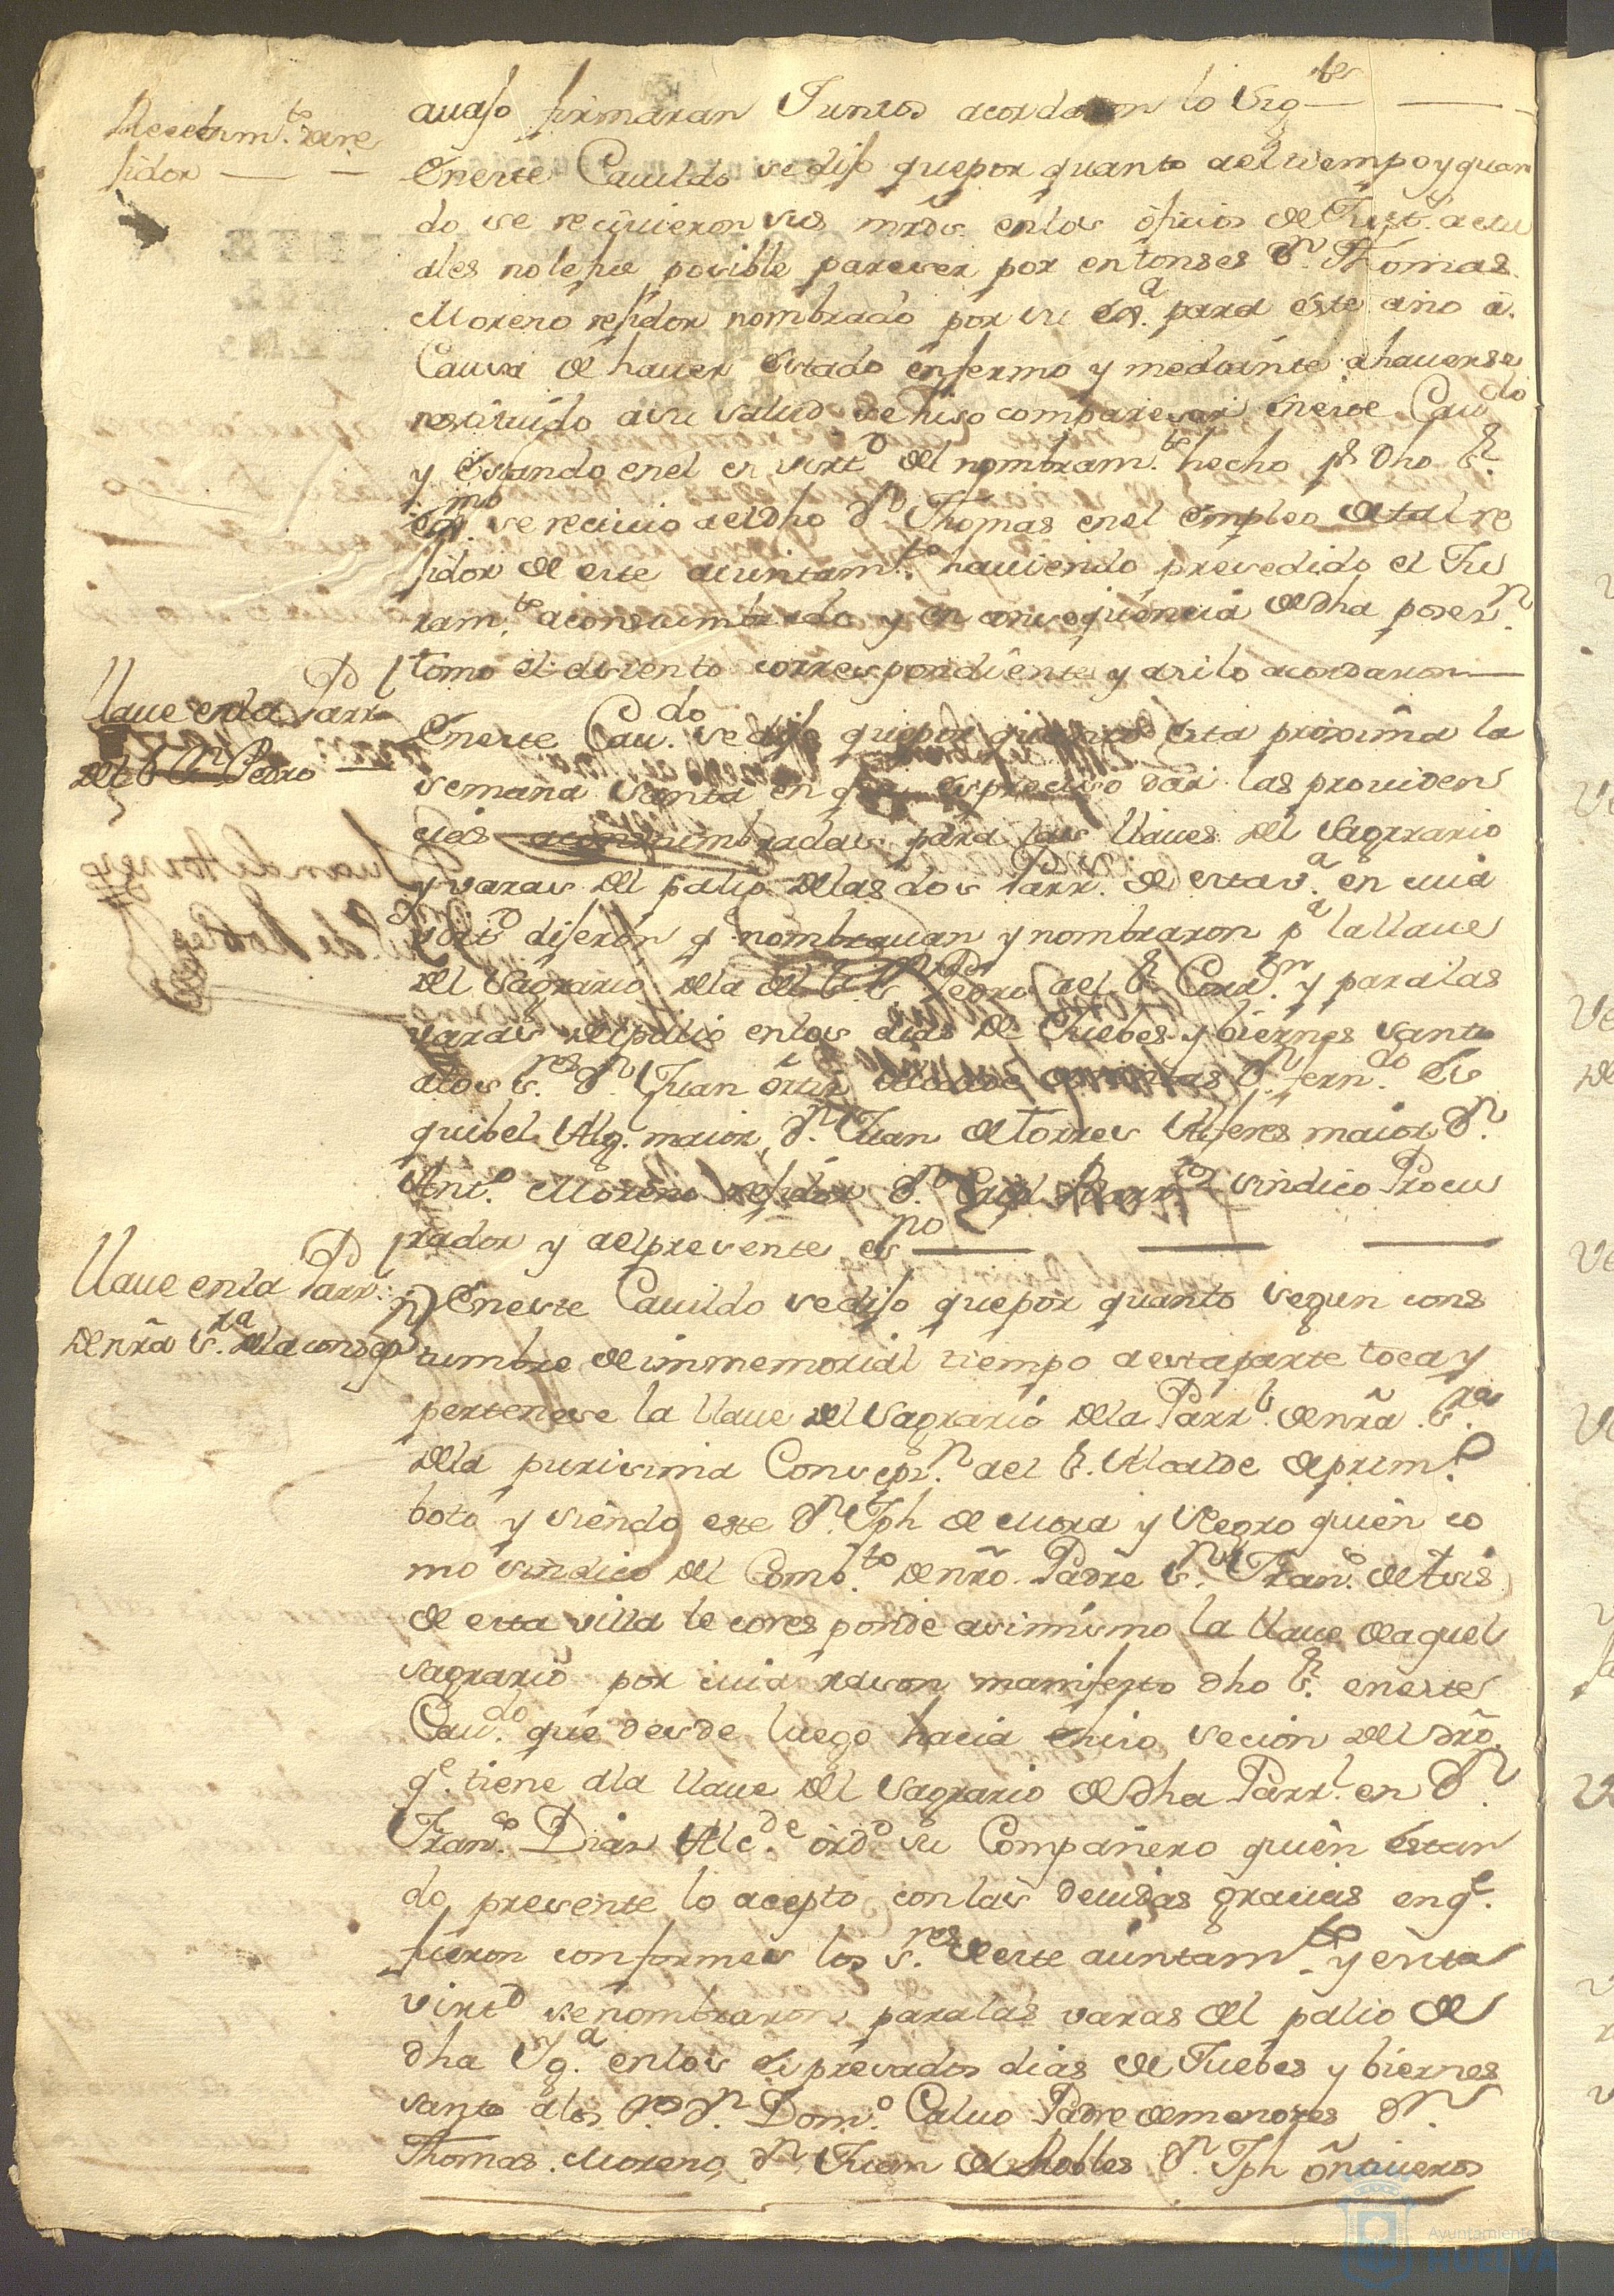 Recevim.to de re
sidor
auajo firmaran Juntos acordaron lo sig.te
Eneste Cauildo se dijo quepor quanto aeltiempo y quan
do se reciuieron sus mrds. enlos ofisios de Just.a actu
ales nolefue posible pareser por entonses Dn. Thomas
Moreno residor nombrado por su Ex.a para este año á
Causa de hauer estado enfermo y mediante ahauerse
restituido asu salud se hiso compareser eneste Cau.do
y estando enel en virt.d del nombram.to hecho pr. dho Sr.
Ex.mo se reciuio aeldho Dn. Thomas enel empleo detal re
sidor de este aiuntam.to hauiendo presedido el Ju
ram.to acostumbrado y en consequiencia de dha poses.n
tomo el asiento correspondiente y asilo acordaron
Llaue enla Parr.
del Sr. Sn. Pedro
Eneste Cau.do se dijo quepor quanto esta proxima la
semana santa en que es presiso dar las prouiden
cias acostumbradas para las llaues del Sagrario
y varas del palio delas dos Parr.s de esta v.a en cuia
virt.d dijeron q nombrauan y nombraron p.a la llaue
del Sagrario dela del Sr. Sn. Pedro ael Sr. Corr.or y paralas
varas del palio enlos dias de Juebes y biernes santo
alos S.res Dn. Juan ortiz Alcalde Dn. fern.do Es
quibel Alg. maior, Dn. Juan de Torres Alferes maior Dn.
Ant.o Moreno residor Dn. sindico Procu
rador y aelpresente es.no
Llaue enla Parr.
denra S.ra dela consep.n
Eneste Cauildo sedijo quepor quanto segun cons
tumbre deimmemorial tiempo aestaparte toca y
pertenese la llaue del Sagrario dela Parr.l denra S.ra
dela purisima Consepz.n ael Sr. Alcalde deprim.o
boto y siendo este Dn. Jph de Mora y Negro quien co
mo sindico del Comb.to denro Padre Sn. Fran.co de Asis
de esta villa le corresponde asimismo la llaue deaquel
sagrario por cuia rason manifesto dho Sr. eneste
Cau.do que desde luego hacia ehiso secion del dro.
q.e tiene ala llaue del Sagrario de dha Parr.l en Dn.
Fran.co Dias Alc.de ord.o su Compañero quien estan
do presente lo acepto con las deuidas gracias enq.e
fueron conformes los S.res deeste aiuntam.to y enesta
virt.d senombraron paralas varas del palio de
dha Yg.a enlos expresados dias de Juebes y biernes
santo alos S.res Dn. Dom.o Caluo Padre demenores Dn.
Thomas Moreno, Dn. Juan de Robles Dn. Jph ontiueros
Ayuntamiento de
HUELVA